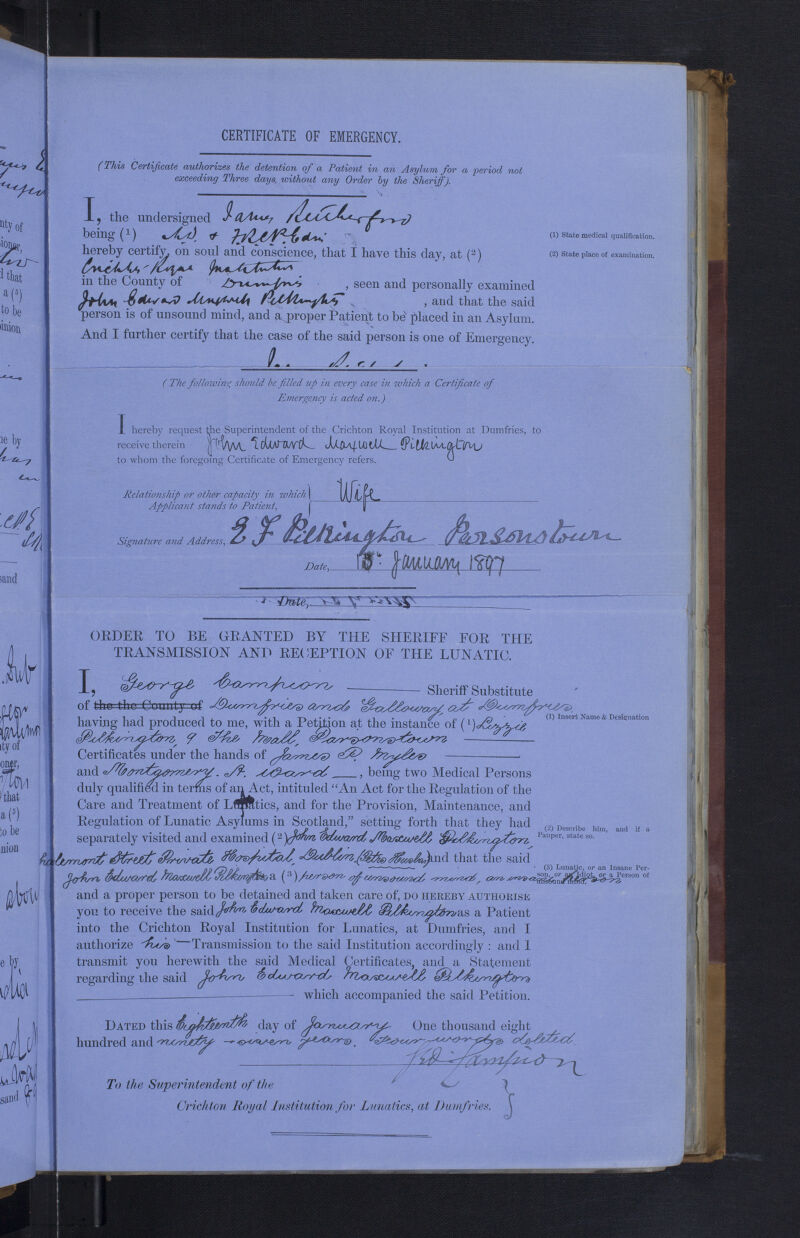 CERTIFICATE OF EMERGENCY.
(This Certificate authorizes the detention of a Patient in an Asylum for a period not
exceeding Three days, without any Order by the Sheriff).
I, the undersigned James Rutherford
being (1) M.D. & F.R.C.P. Edin
(1) State medical qualification.
hereby certify, on soul and conscience, that I have this day, at (2)
(2) State place of examination.
Crichton Royal Institution
in the County of Dumfries, seen and personally examined
John Edward Maxwell Pilkington, and that the said
person is of unsound mind, and a proper Patient to be placed in an Asylum.
And I further certify that the case of the said person is one of Emergency.
(The following should be filled up in every case in which a Certificate of
Emergency is acted on.)
I hereby request the Superintendent of the Crichton Royal Institution at Dumfries, to
receive therein John Edward Maxwell Pilkington
to whom the foregoing Certificate of Emergency refers.
Relationship or other capacity in which
Applicant stands to Patient, Wife
Signature and Address, E F Pilkington Parsonstown
Date, January 1897
Date,
ORDER TO BE GRANTED BY THE SHERIFF FOR THE
TRANSMISSION AND RECEPTION OF THE LUNATIC.
I, George Campion Sheriff Substitute
of the the County of Dumfries and Galloway at Dumfries,
having had produced to me, with a Petition at the instance of (1) Lizzie
(1) Insert Name & Designation
Pilkington, 9 The Mall, Parsonstown
Certificates under the hands of James P. Myles
and Montgomery. A. Ward, being two Medical Persons
duly qualified in terms of an Act, intituled "An Act for the Regulation of the
Care and Treatment of Lunatics, and for the Provision, Maintenance, and
Regulation of Lunatic Asylums in Scotland," setting forth that they had
separately visited and examined (2) John Edward Maxwell Pilkington,
(2) Describe him, and if a
Pauper, state so.
Street Private Hospital, Dublin, and that the said
John Edward Maxwell Pilkington is a (3) person of unsound mind, an insane person
(3) Lunatic, or an Insane Per-
son, or an Idiot, or a Person of
unsound mind.
and a proper person to be detained and taken care of, DO HEREBY AUTHORISE
you to receive the said John Edward Maxwell Pilkington as a Patient
into the Crichton Royal Institution for Lunatics, at Dumfries, and I
authorize his Transmission to the said Institution accordingly: and I
transmit you herewith the said Medical Certificates, and a Statement
regarding the said John Edward Maxwell Pilkington
which accompanied the said Petition.
DATED this Eighteenth day of January One thousand eight
hundred and ninety-seven years. Four words deleted.
Geo. Campion
To the Superintendent of the
Crichton Royal Institution for Lunatics, at Dumfries.